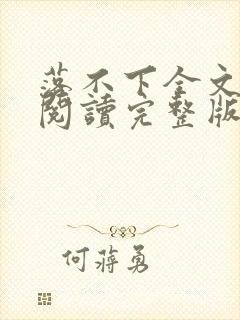 落不下全文
閱讀完整版
何蔣勇